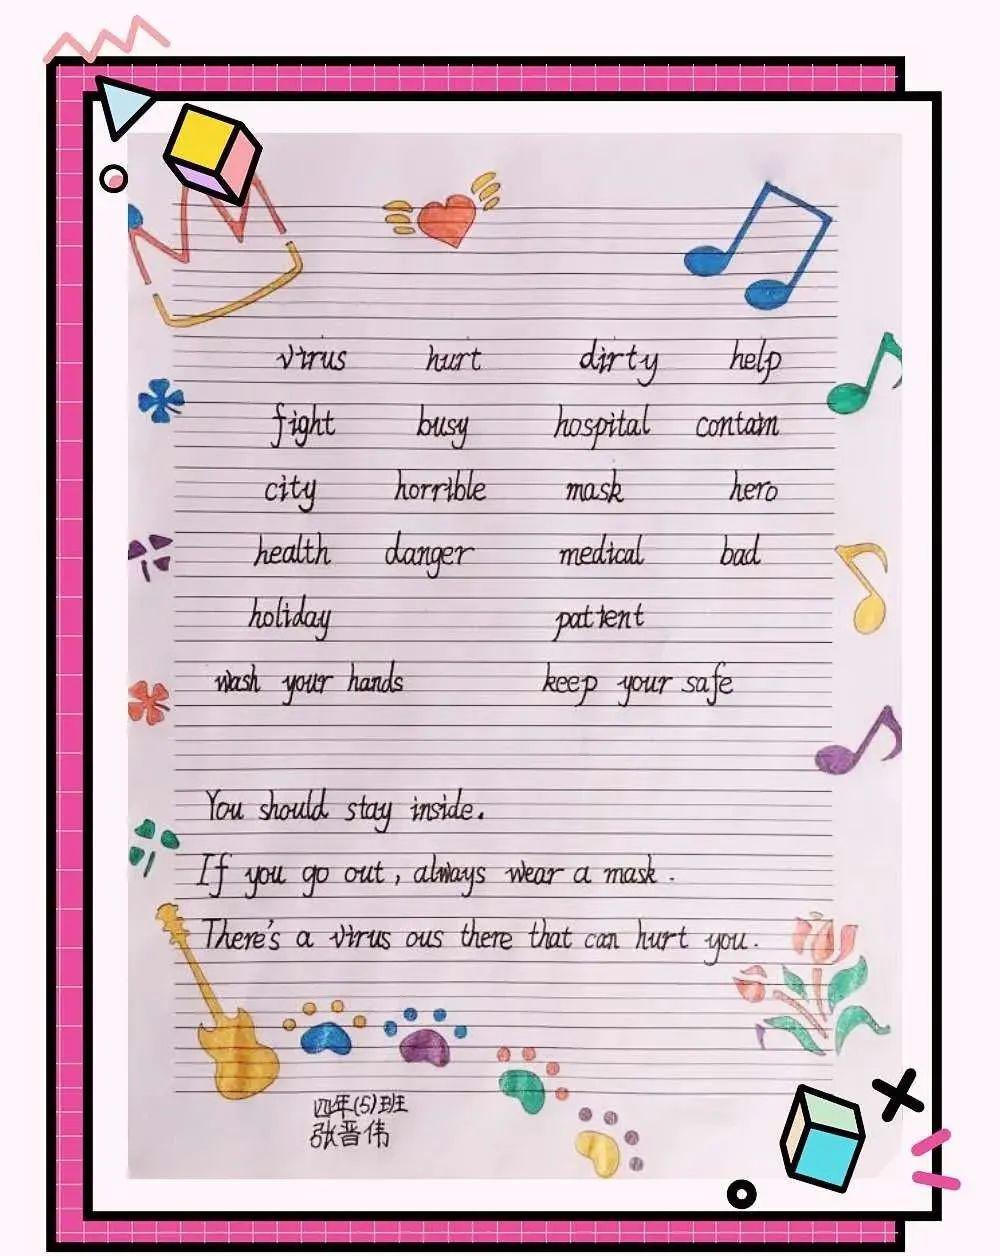 virus hurt dirty help
fight busy hospital contain
city horrible mask hero
health danger medical bad
holiday patient
wash your hands keep your safe
You should stay inside.
If you go out, always wear a mask.
There's a virus ous there that can hurt you.
四年(5)班
张晋伟